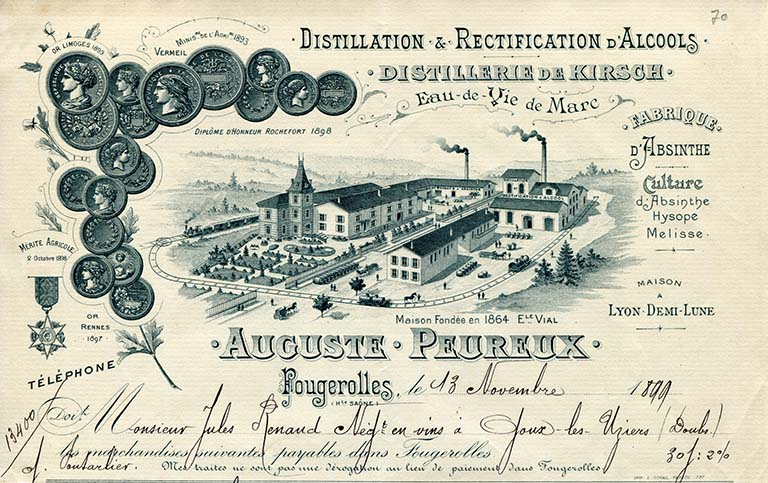 70
OR LIMOGES 1893
MINIS.RE DE L'AGRI.RE 1893
VERMEIL
DISTILLATION & RECTIFICATION D'ALCOOLS
DISTILLERIE DE KIRSCH
Eau-de-Vie de Marc
DIPLÔME D'HONNEUR ROCHEFORT 1898
FABRIQUE
D'ABSINTHE
Culture
d'Absinthe
Hysope
Melisse
MAISON
A
LYON-DEMI-LUNE
MÉRITE AGRICOLE
2 Octobre 1898
OR
RENNES
1897
TÉLÉPHONE
RECTIFICATION D'ALCOOL
Maison Fondée en 1864 ELE VIAL
AUGUSTE PEUREUX
Fougerolles, le 13 Novembre 1899
(HTE SAÔNE)
13400
Doit Monsieur Jules Renaud Nég.t en vins à Joux-les-Uziers (Doubs)
les marchandises suivantes payables dans Fougerolles 30 j: 2%
Pontarlier. Mes traites ne sont pas une dérogation au lieu de paiement dans Fougerolles